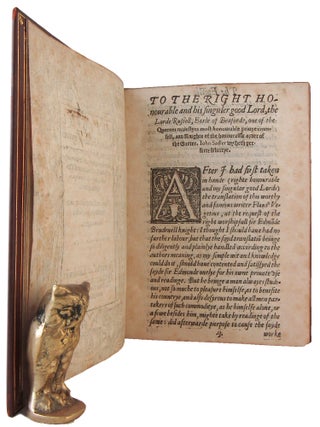 TO THE RIGHT HO-
nourable and his singuler good Lord, the
Lorde Russell, Earle of Bedforde, one of the
Queenes maiestyes most honourable priuye coun-
sell, and Knighte of the honourable order of
the Garter. John Sadler wysheth per-
fecte felicitye.
AFter I had first taken
in hande (righte honourable
and my singuler good Lorde)
the translation of this worthy
and famous wryter Flaui' Ve-
getius, at the request of the
right worshipfull sir Edmūde
Brudenell knight: I thought I should haue had no
further labour, but that the sayd translatiō being
so diligently and plainlye handled according to the
authours meaning, as my simple wit and knowledge
could do it, should haue contented and satisfyed the
sayde sir Edmunde onelye for his owne priuate vse
and readinge. But he being a man alwayes studi-
ous, not so much to pleasure himselfe, as to benefite
his countrey, and also desirous to make all men par-
takers of such commodityes, as he himselfe alone, or
a fewe besides him, mighte take by readinge of the
same: did afterwarde purpose to cause the sayde
worke